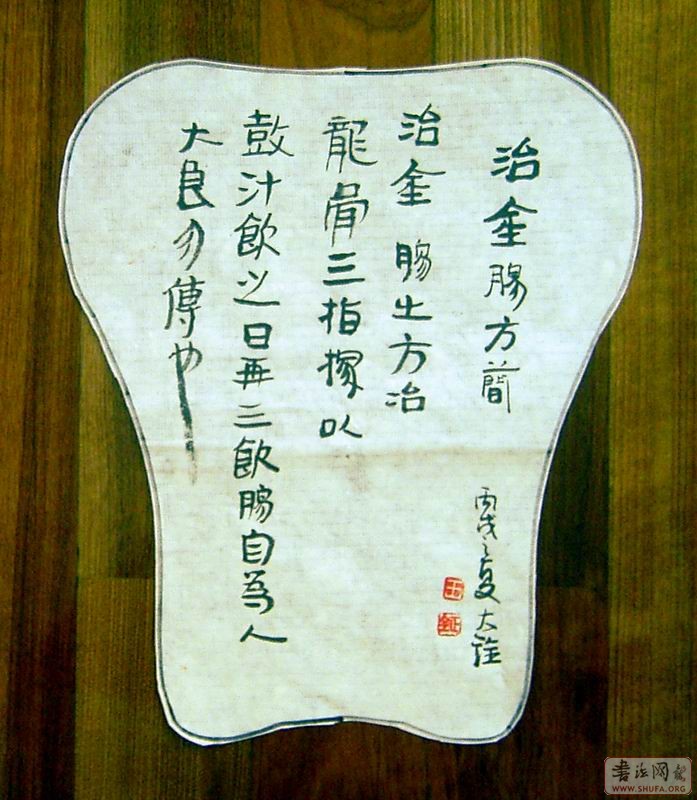 治金腸方簡
丙戌之夏大詮
治金腸出方冶
龍骨三指撮以
豉汁飲之日再三飲腸自為入
大良勿傳也
书法网
WWW.SHUFA.ORG